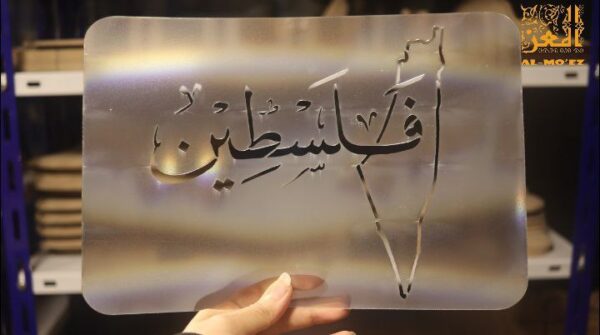 المعز
AL-MO'EZ
فلسطين